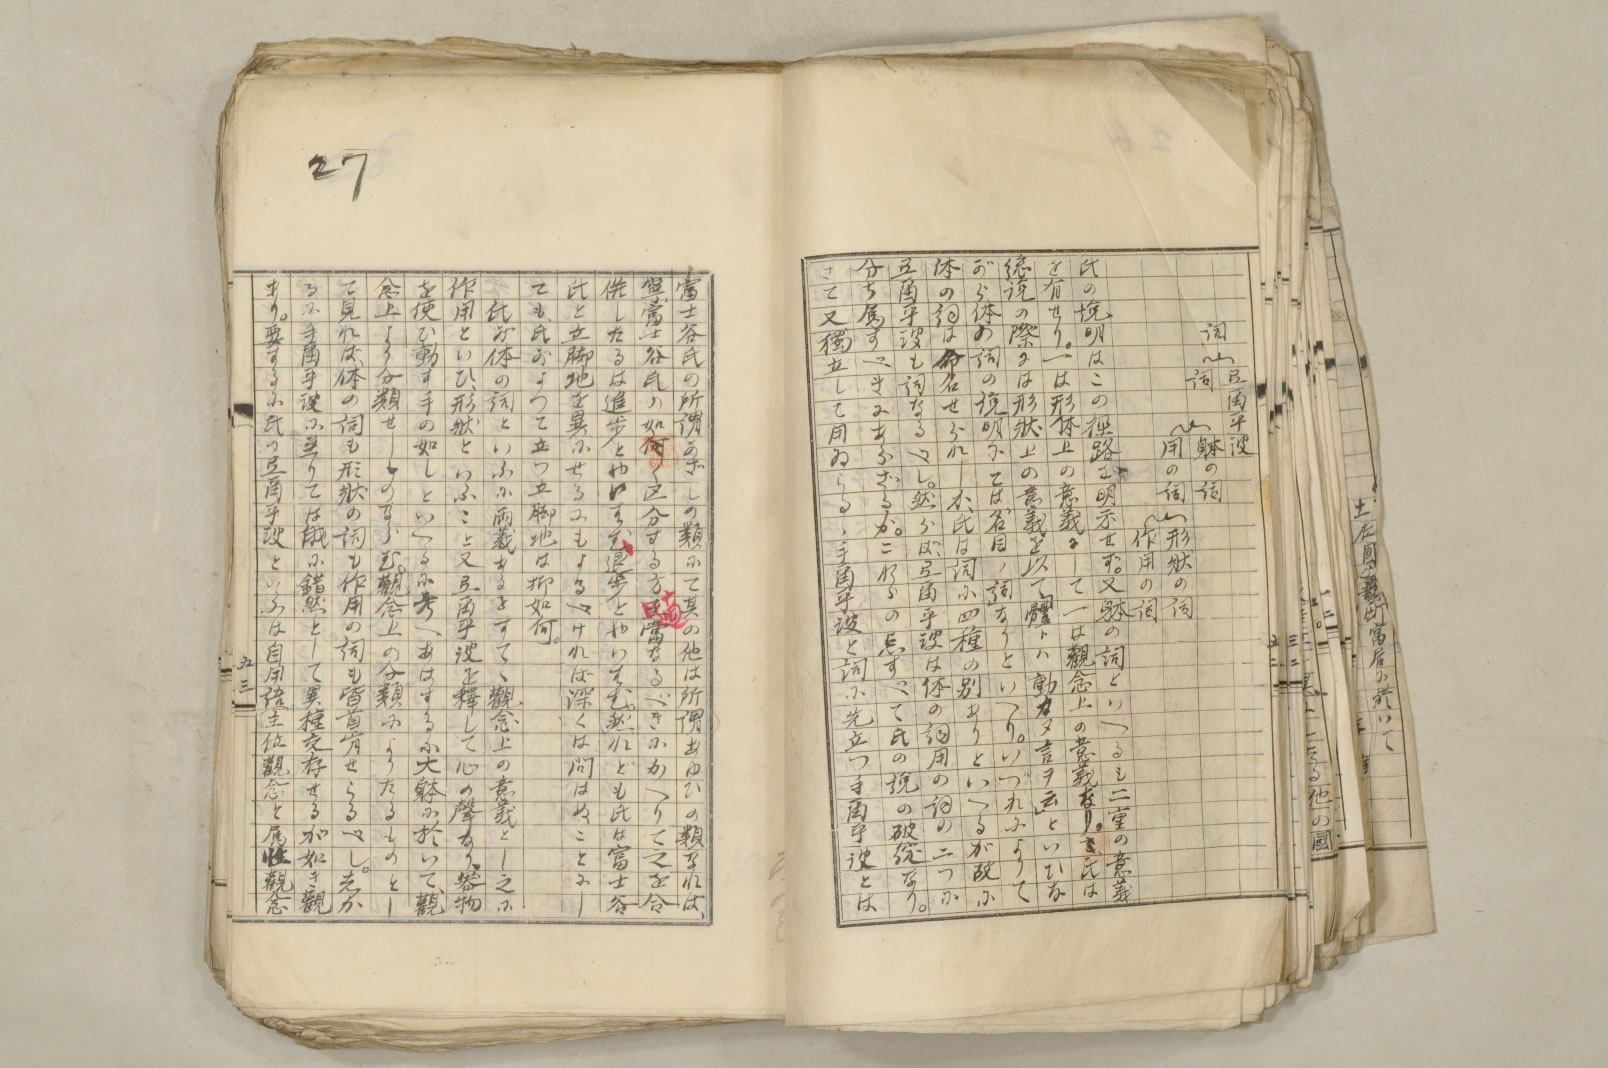 詞
弖爾乎波
詞
躰の詞
用の詞
形狀の詞
作用の詞
氏の説明はこの徑路を明示せず。又躰の詞といへるも二重の意義
を有せり。一は形体上の意義にして一は觀念上の意義なり。氏は
總説の際には形狀上の意義を以て「體トハ動カヌ言ヲ云」といひな
がら体の詞の説明にては「名目ノ詞」なりといへり。いづれによりて
体の詞は命名せられしか、氏は詞に四種の別ありといへるが故に
弖爾乎波も詞なるべし。然らば、弖爾乎波は体の詞用の詞の二つに
分ち属すべきにあらざるか。これらの点すべて氏の説の破綻なり。
さて又獨立して用ゐらるゝ手爾乎波と詞に先立つ手爾乎波とは
27
富士谷氏の所謂かざしの類にて其の他は所謂あゆひの類なれば、
富士谷氏の如く区分する方適當なるべきかかへりて之を合
併したるは進歩とやいはむ退歩とやいはむ。然れども氏は富士谷
氏と立脚地を異にせるにもよるべければ深くは問はぬことにし
ても、氏によつて立つ立脚地は抑如何。
氏が体の詞といふに両義あるをすてゝ觀念上の意義とし之に
作用といひ、形狀といふこと又弖爾乎波を釋して心の聲なり。器物
を使ひ動す手の如しといへるに考へあはするに大躰に於いて、觀
念上より分類せしものならむ。觀念上の分類によりたるものとし
て見れば、体の詞も形狀の詞も作用の詞も皆首肯せらるべし。しか
るに手爾乎波に至りては誠に錯然として異種交存せるが如き觀
あり。要するに氏の弖爾乎波といふは自用語主位觀念と属性觀念
五三
土居町當居に於いて
他の國